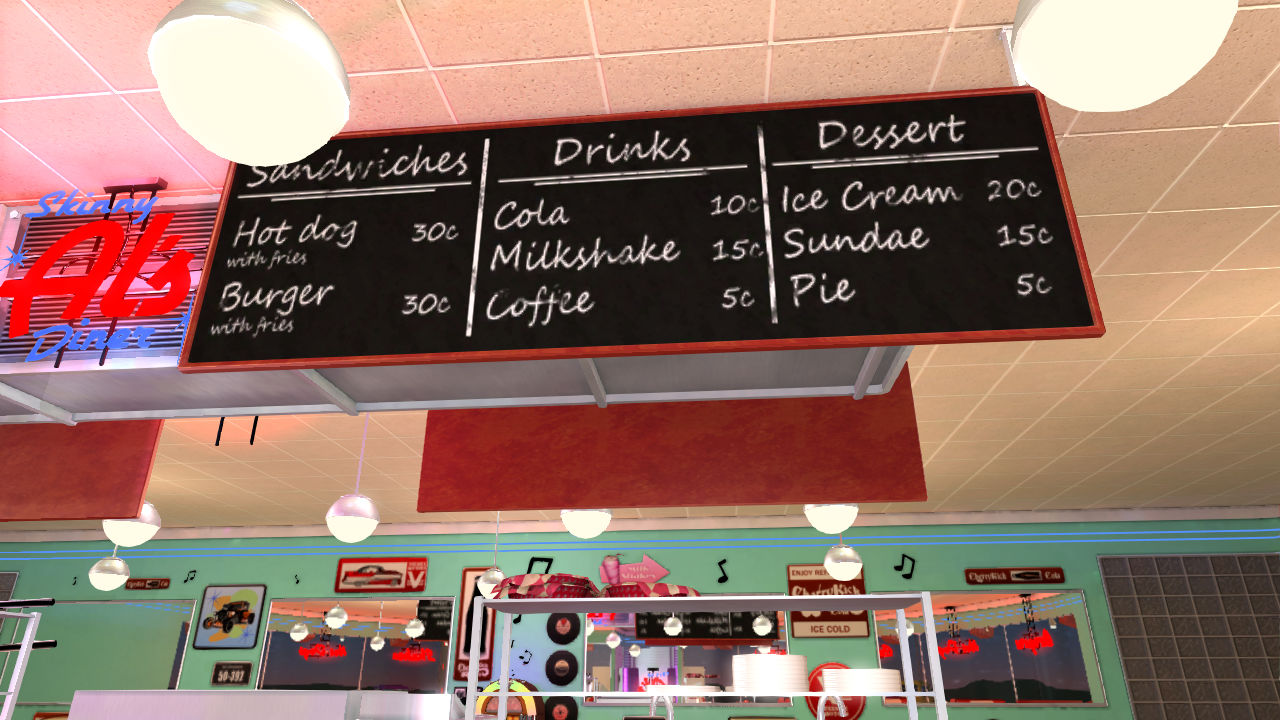 Skinny
Al's
Diner
Sandwiches
Hot dog 30c
with fries
Burger 30c
with fries
Drinks
Cola 10c
Milkshake 15c
Coffee 5c
Dessert
Ice Cream 20c
Sundae 15c
Pie 5c
Milk
Shakes
CherryKick Cola
ICE COLD
50-392